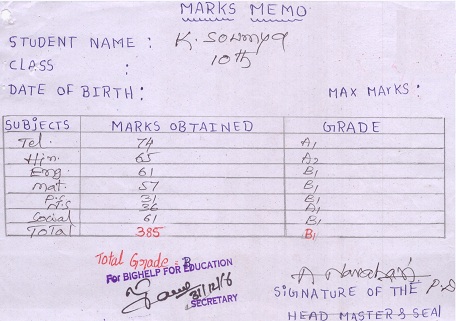 MARKS MEMO
STUDENT NAME : K. Sowmya
CLASS : 10th
DATE OF BIRTH : MAX MARKS :
SUBJECTS MARKS OBTAINED GRADE
Tel. 74 A1
Hin. 65 A2
Eng. 61 B1
mat. 57 B1
P.S 31 B1
N.S 36 A1
Social 61 B1
Total 385 B1
Total Grade : B
For BIGHELP FOR EDUCATION
31/12/16
SECRETARY
SIGNATURE OF THE
HEAD MASTER & SEAL